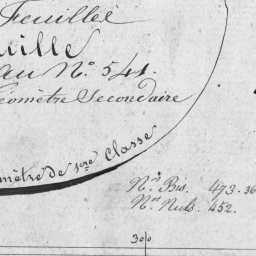 Feuillée
ville
au N.° 541.
Géomètre Secondaire
mètre de 1ère Classe
N.os Bis. 493.36
N.os Nuls. 452.
30/0